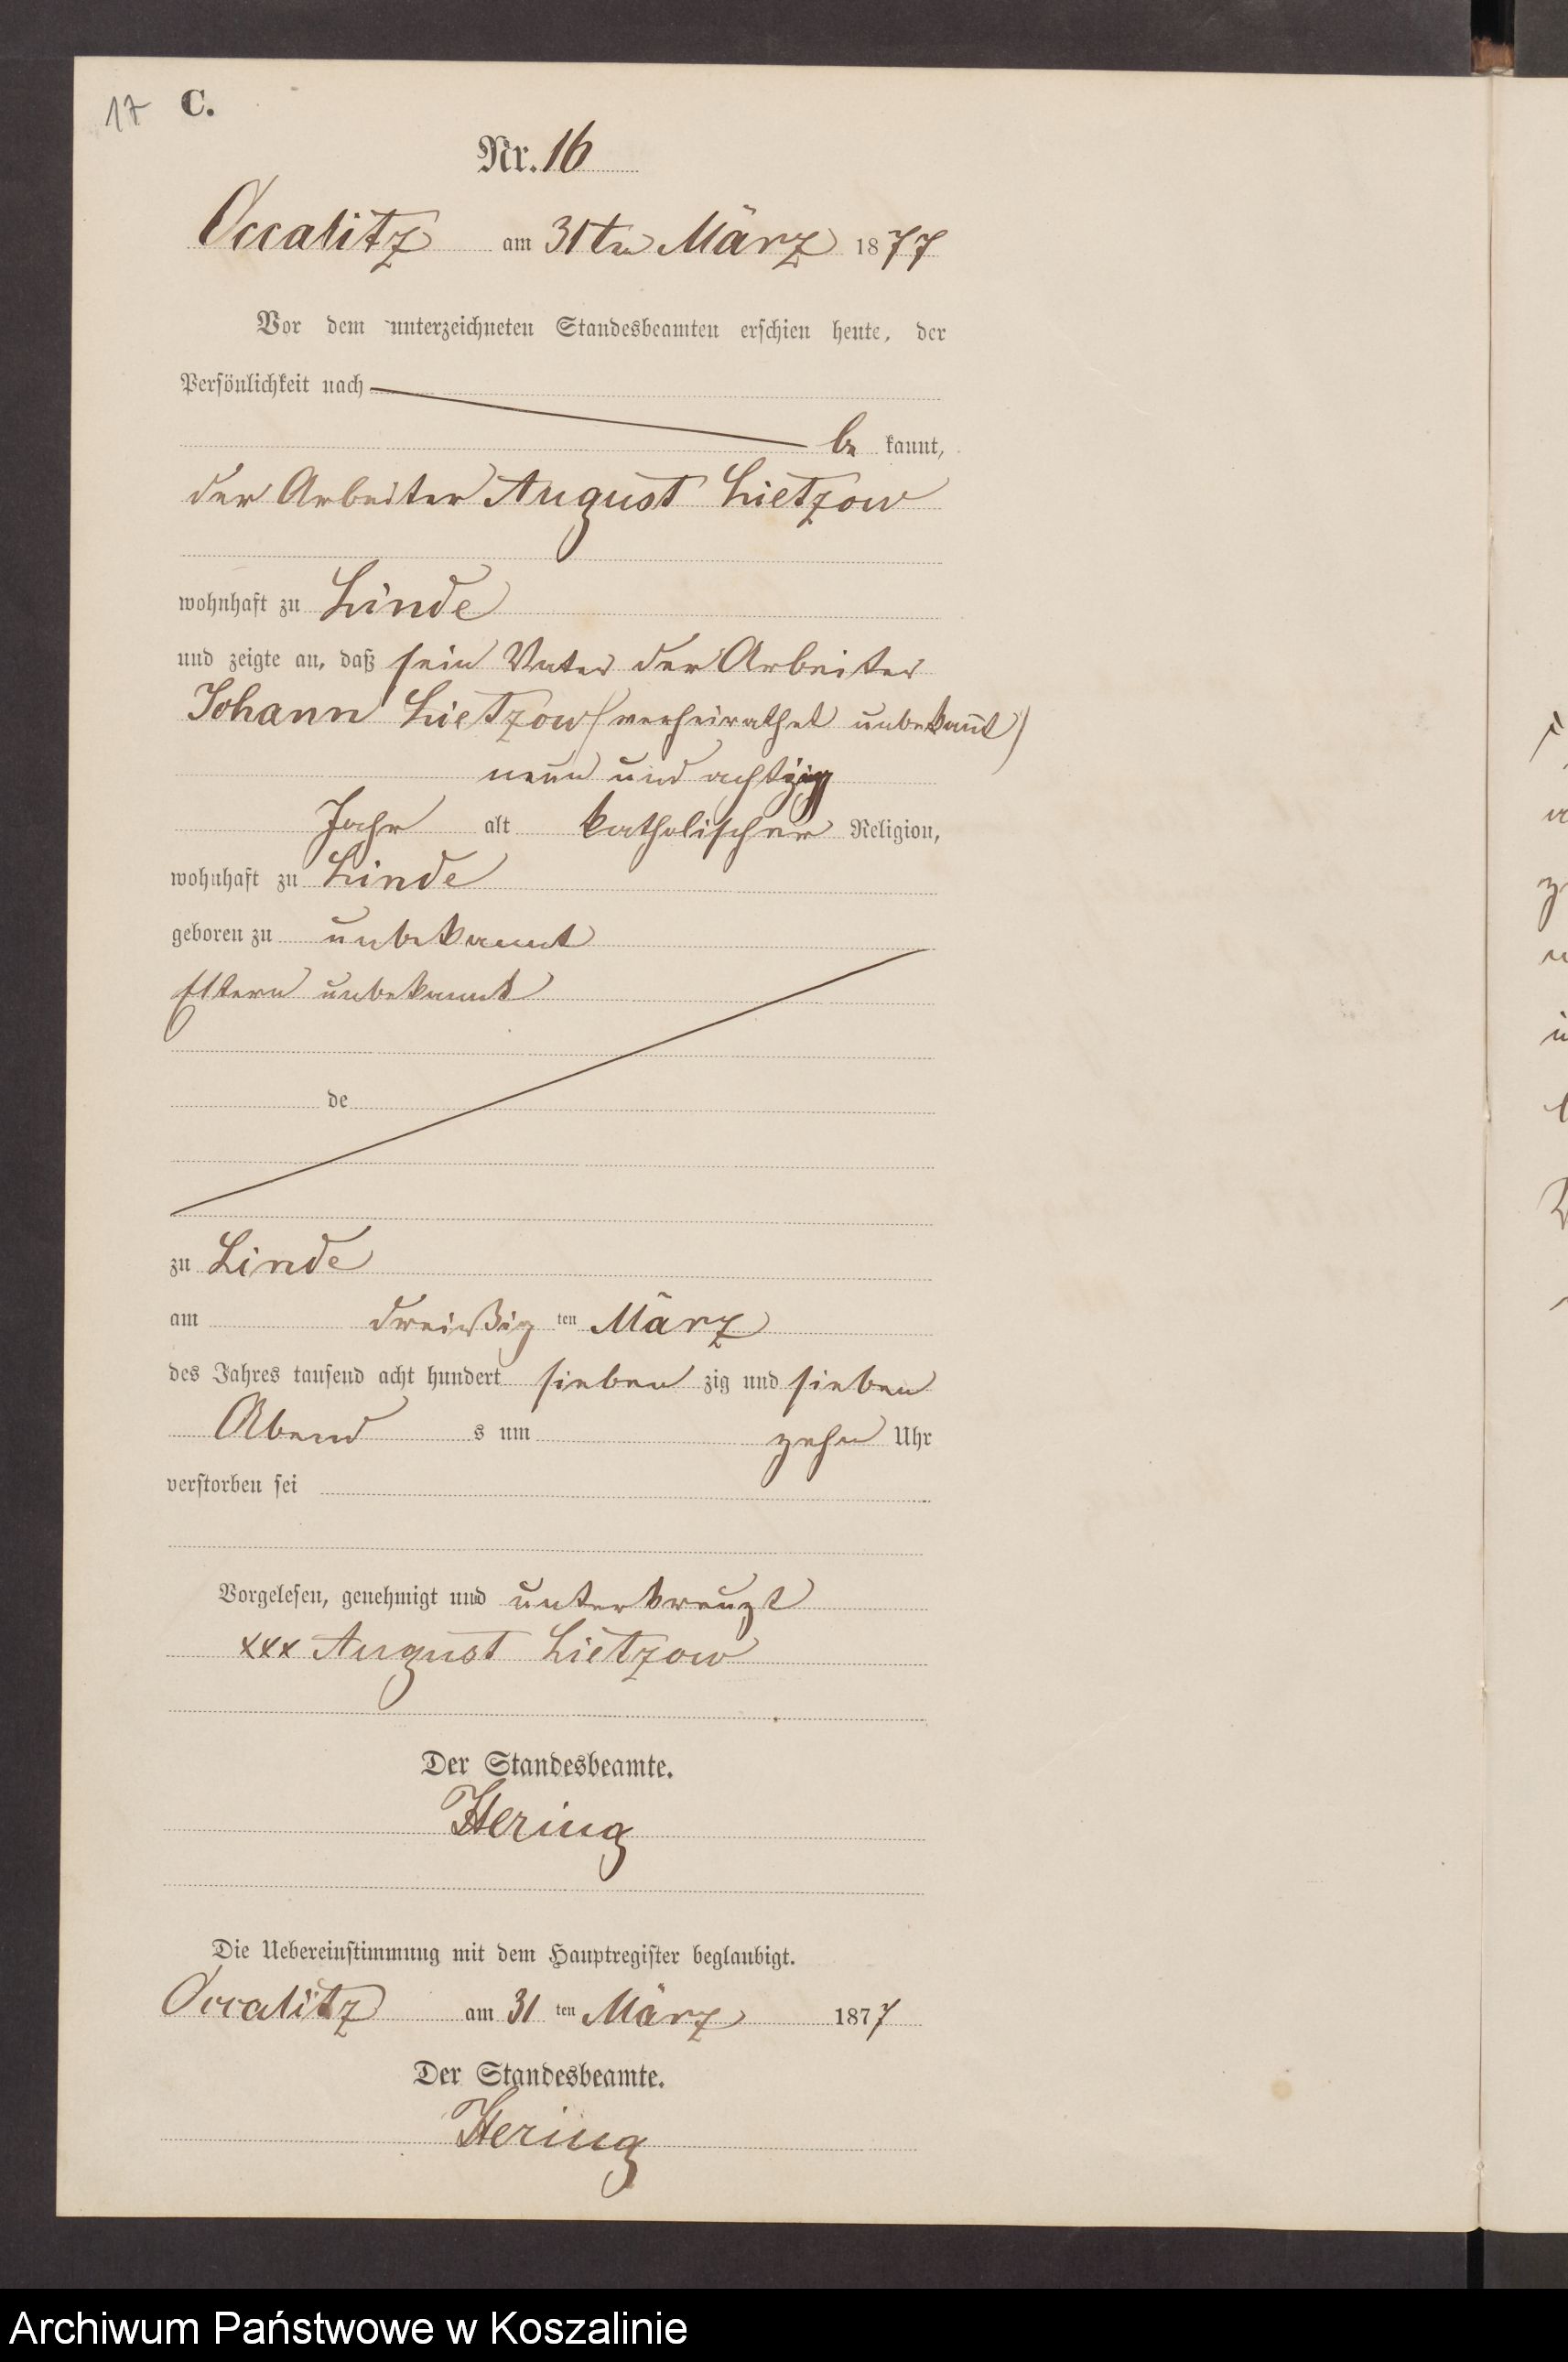 17 C.
Nr. 16
Occalitz am 31ten März 1877
Vor dem unterzeichneten Standesbeamten erschien heute, der
Persönlichkeit nach
be kannt,
der Arbeiter August Lietzow
wohnhaft zu Linde
und zeigte an, daß sein Vater der Arbeiter
Johann Lietzow (verheirathet unbekannt)
neun und achtzig
Jahr alt katholischer Religion,
wohnhaft zu Linde
geboren zu unbekannt
Eltern unbekannt
de
zu Linde
am dreißig ten März
des Jahres tausend acht hundert sieben zig und sieben
Abend s um zehn Uhr
verstorben sei
Vorgelesen, genehmigt und unterkreuzt
xxx August Lietzow
Der Standesbeamte.
Hering
Die Uebereinstimmung mit dem Hauptregister beglaubigt.
Occalitz am 31 ten März 1877
Der Standesbeamte.
Hering
Archiwum Państwowe w Koszalinie